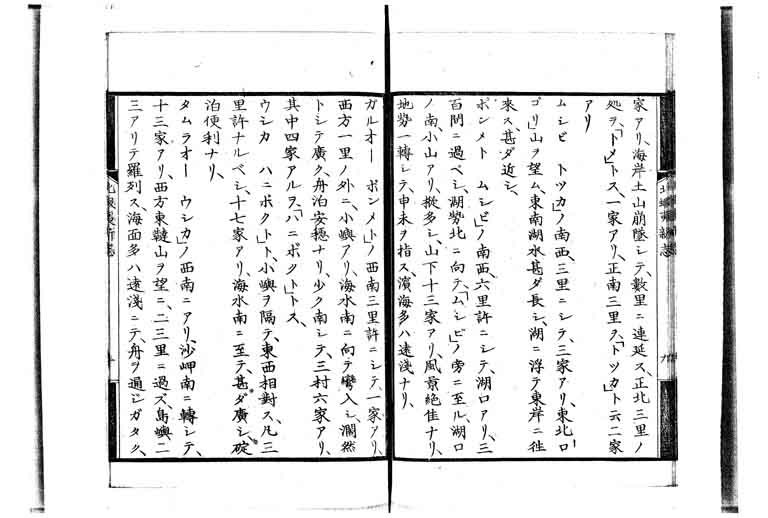 家アリ、海岸土山崩墜シテ、數里ニ連延ス、正北三里ノ
処ヲ、「トメ」トス、一家アリ、正南三里ヲ、「トツカ」ト云、二家
アリ
ムシビ　トツカ」ノ南西、三里ニシテ、三家アリ、東北ロ
ゴリ」山ヲ望ム、東南湖水甚ダ長シ、湖ニ浮テ東岸ニ徃
來ス、甚ダ近シ、
ポンメト　ムシビ」ノ南西、六里許ニシテ、湖口アリ、三
百間ニ過ベシ、湖勢北ニ向テ、「ムシビ」ノ旁ニ至ル、湖口
ノ南、小山アリ、樅多シ、山下十三家アリ、風景絶佳ナリ、
地勢一轉シテ、申未ヲ指ス、濱海多ハ遠淺ナリ、
ガルオー　ポンメト」ノ西南三里許ニシテ、一家アリ、
西方一里ノ外ニ、小嶼アリ、海水南ニ向テ彎入シ、濶然
トシテ廣ク、舟泊安穩ナリ、少ク南シテ、三村六家アリ、
其中四家アルヲ、「ハニボクト」トス、
ウシカ　ハニボクト」ト、小嶼ヲ隔テ、東西相對ス、凡三
里許ナルベシ、十七家アリ、海水南ニ至テ、甚ダ廣シ、碇
泊便利ナリ、
タムラオー　ウシカ」ノ西南ニアリ、沙岬南ニ轉シテ、
十三家アリ、西方東韃山ヲ望ニ、二三里ニ過ズ、島嶼二
三アリテ羅列ス、海面多ハ遠淺ニテ、舟ヲ通シガタク、